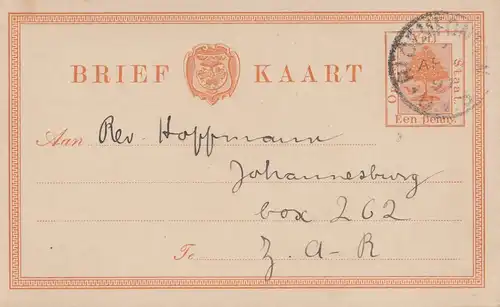 BRIEF KAART
Staat.
Een penny.
Aan Rev. Hoffmann
Johannesburg
box 262
Te Z.A-R